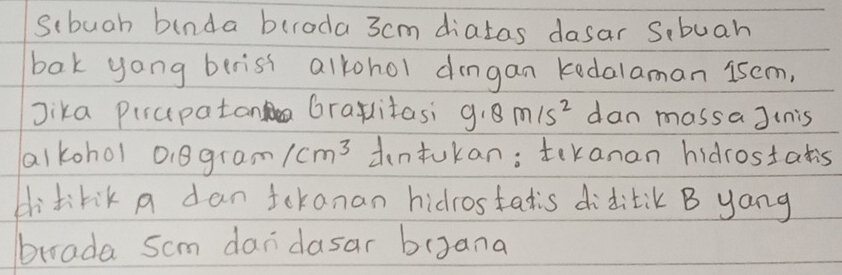 Sebuah benda berada 3cm diatas dasar Sebuah
bak yang berisi alkohol dengan kedalaman 15cm,
Jika percepatan Gravitasi 9.8 m/s² dan massa Jenis
alkohol 0,8 gram/cm³ tentukan: tekanan hidrostatis
dititik A dan tekanan hidrostatis dititik B yang
berada 5cm dari dasar bejana